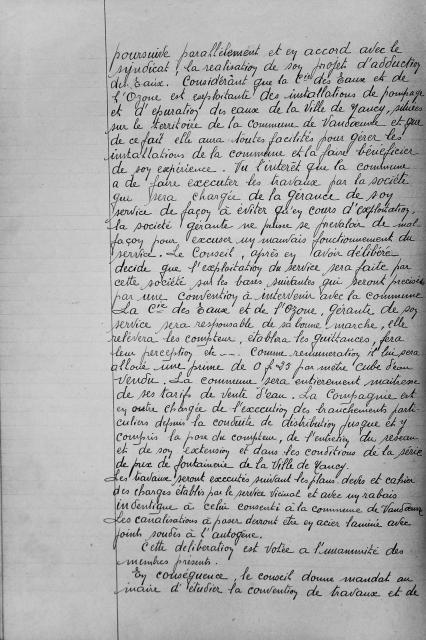 poursuive parallèlement et en accord avec le
syndicat, la réalisation de son projet d'adduction
des Eaux. Considérant que la Cie des Eaux et de
l'Ozone est exploitante des installations de pompage
et d'épuration des eaux de la Ville de Nancy, situées
sur le territoire de la commune de Vandœuvre et que
de ce fait elle aura toutes facilités pour gérer les
installations de la commune et la faire bénéficier
de son expérience. Vu l'intérêt que la commune
a de faire exécuter les travaux par la société
qui sera chargée de la gérance de son
service de façon à éviter qu'en cours d'exploitation,
la société gérante ne puisse se prévaloir de mal
façon pour excuser un mauvais fonctionnement du
service. Le Conseil, après en avoir délibéré
décide que l'exploitation du service sera faite par
cette société sur les bases suivantes qui seront précisées
par une convention à intervenir avec la commune
La Cie des Eaux et de l'Ozone, gérante de son
service sera responsable de sa bonne marche, elle
relèvera les compteurs, établira les quittances, fera
leur perception etc --- Comme rémunération il lui sera
alloué une prime de 0 f 25 par mètre cube d'eau
vendu. La commune sera entièrement maîtresse
de ses tarifs de vente d'eau. La Compagnie est
en outre chargée de l'exécution des branchements parti-
culiers depuis la conduite de distribution jusque et y
compris la pose du compteur, de l'entretien du réseau
et de son extension et dans les conditions de la série
de prix de fontainerie de la Ville de Nancy.
Les travaux seront exécutés suivant les plans, devis et cahier
des charges établis par le service vicinal et avec un rabais
indentique à celui consenti à la commune de Vandœuvre
Les canalisations à poser devront être en acier laminé avec
joints soudés à l'autogène.
Cette délibération est votée à l'unanimité des
membres présents.
En conséquence, le conseil donne mandat au
maire d'étudier la convention de travaux et de